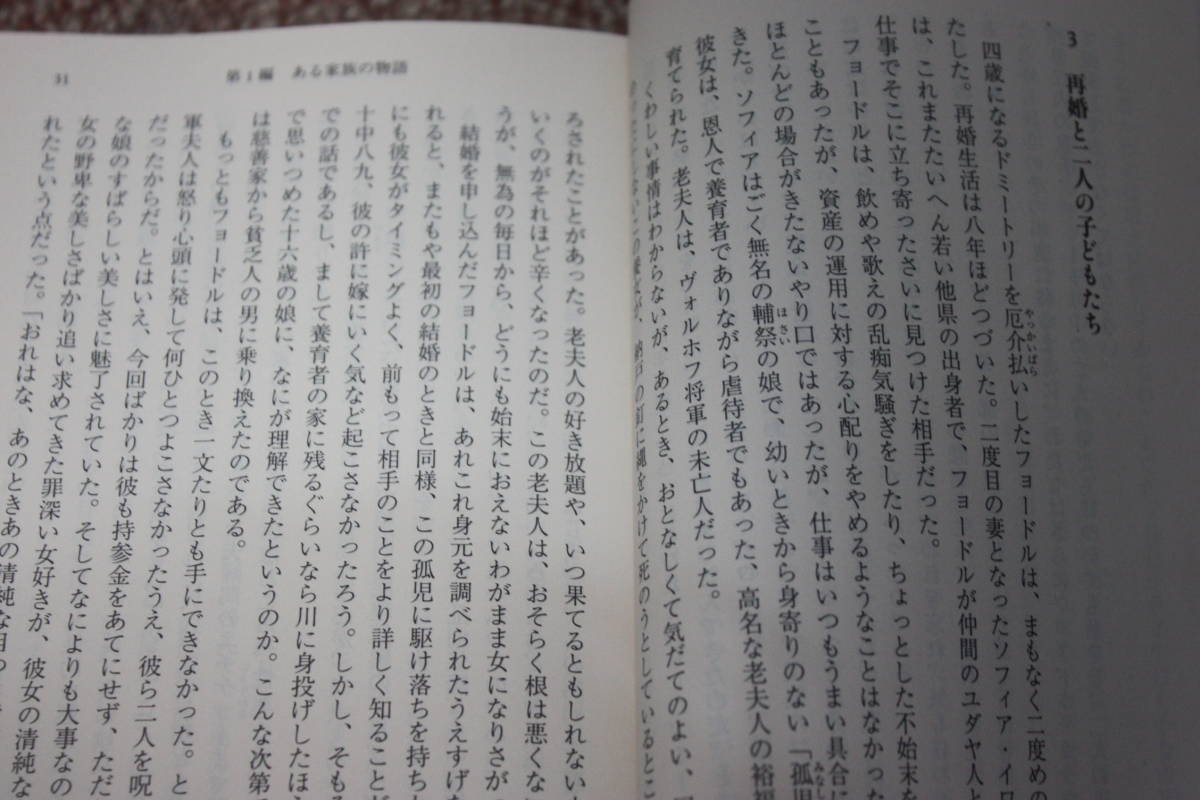 3 再婚と二人の子どもたち
四歳になるドミートリーを厄介払いしたフョードルは、まもなく二度めの
やっかいばら
たした。再婚生活は八年ほどつづいた。二度目の妻となったソフィア・イワ
は、これまたたいへん若い他県の出身者で、フョードルが仲間のユダヤ人と
仕事でそこに立ち寄ったさいに見つけた相手だった。
フョードルは、飲めや歌えの乱痴気騒ぎをしたり、ちょっとした不始末を
こともあったが、資産の運用に対する心配りをやめるようなことはなかった
ほとんどの場合がきたないやり口ではあったが、仕事はいつもうまい具合に
きた。ソフィアはごく無名の輔祭の娘で、幼いときから身寄りのない「孤児
ほさい
みなし
彼女は、恩人で養育者でありながら虐待者でもあった、高名な老夫人の裕福
育てられた。老夫人は、ヴォルホフ将軍の未亡人だった。
くわしい事情はわからないが、あるとき、おとなしくて気だてのよい、
の釘に縄をかけて死のうとしているとこ
31
第1編 ある家族の物語
ろされたことがあった。老夫人の好き放題や、いつ果てるともしれない
いくのがそれほど辛くなったのだ。この老夫人は、おそらく根は悪くな
うが、無為の毎日から、どうにも始末におえないわがまま女になりさが
結婚を申し込んだフョードルは、あれこれ身元を調べられたうえすげな
れると、またもや最初の結婚のときと同様、この孤児に駆け落ちを持ち
にも彼女がタイミングよく、前もって相手のことをより詳しく知ること
十中八九、彼の許に嫁にいく気など起こさなかったろう。しかし、そも
での話であるし、まして養育者の家に残るぐらいなら川に身投げしたほ
で思いつめた十六歳の娘に、なにが理解できたというのか。こんな次第
は慈善家から貧乏人の男に乗り換えたのである。
もっともフョードルは、このとき一文たりとも手にできなかった。
軍夫人は怒り心頭に発して何ひとつよこさなかったうえ、彼ら二人を呪
だったからだ。とはいえ、今回ばかりは彼も持参金をあてにせず、ただ
な娘のすばらしい美しさに魅了されていた。そしてなによりも大事なの
女の野卑な美しさばかり追い求めてきた罪深い女好きが、彼女の清純な
れたという点だった。「おれはな、あのときあの清純な